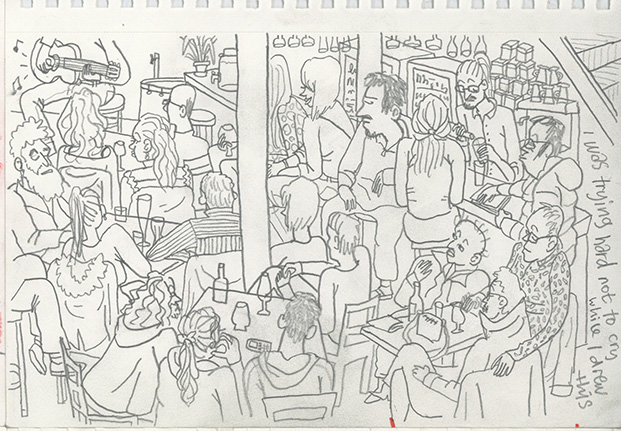 I was trying hard not to cry
while I drew
this